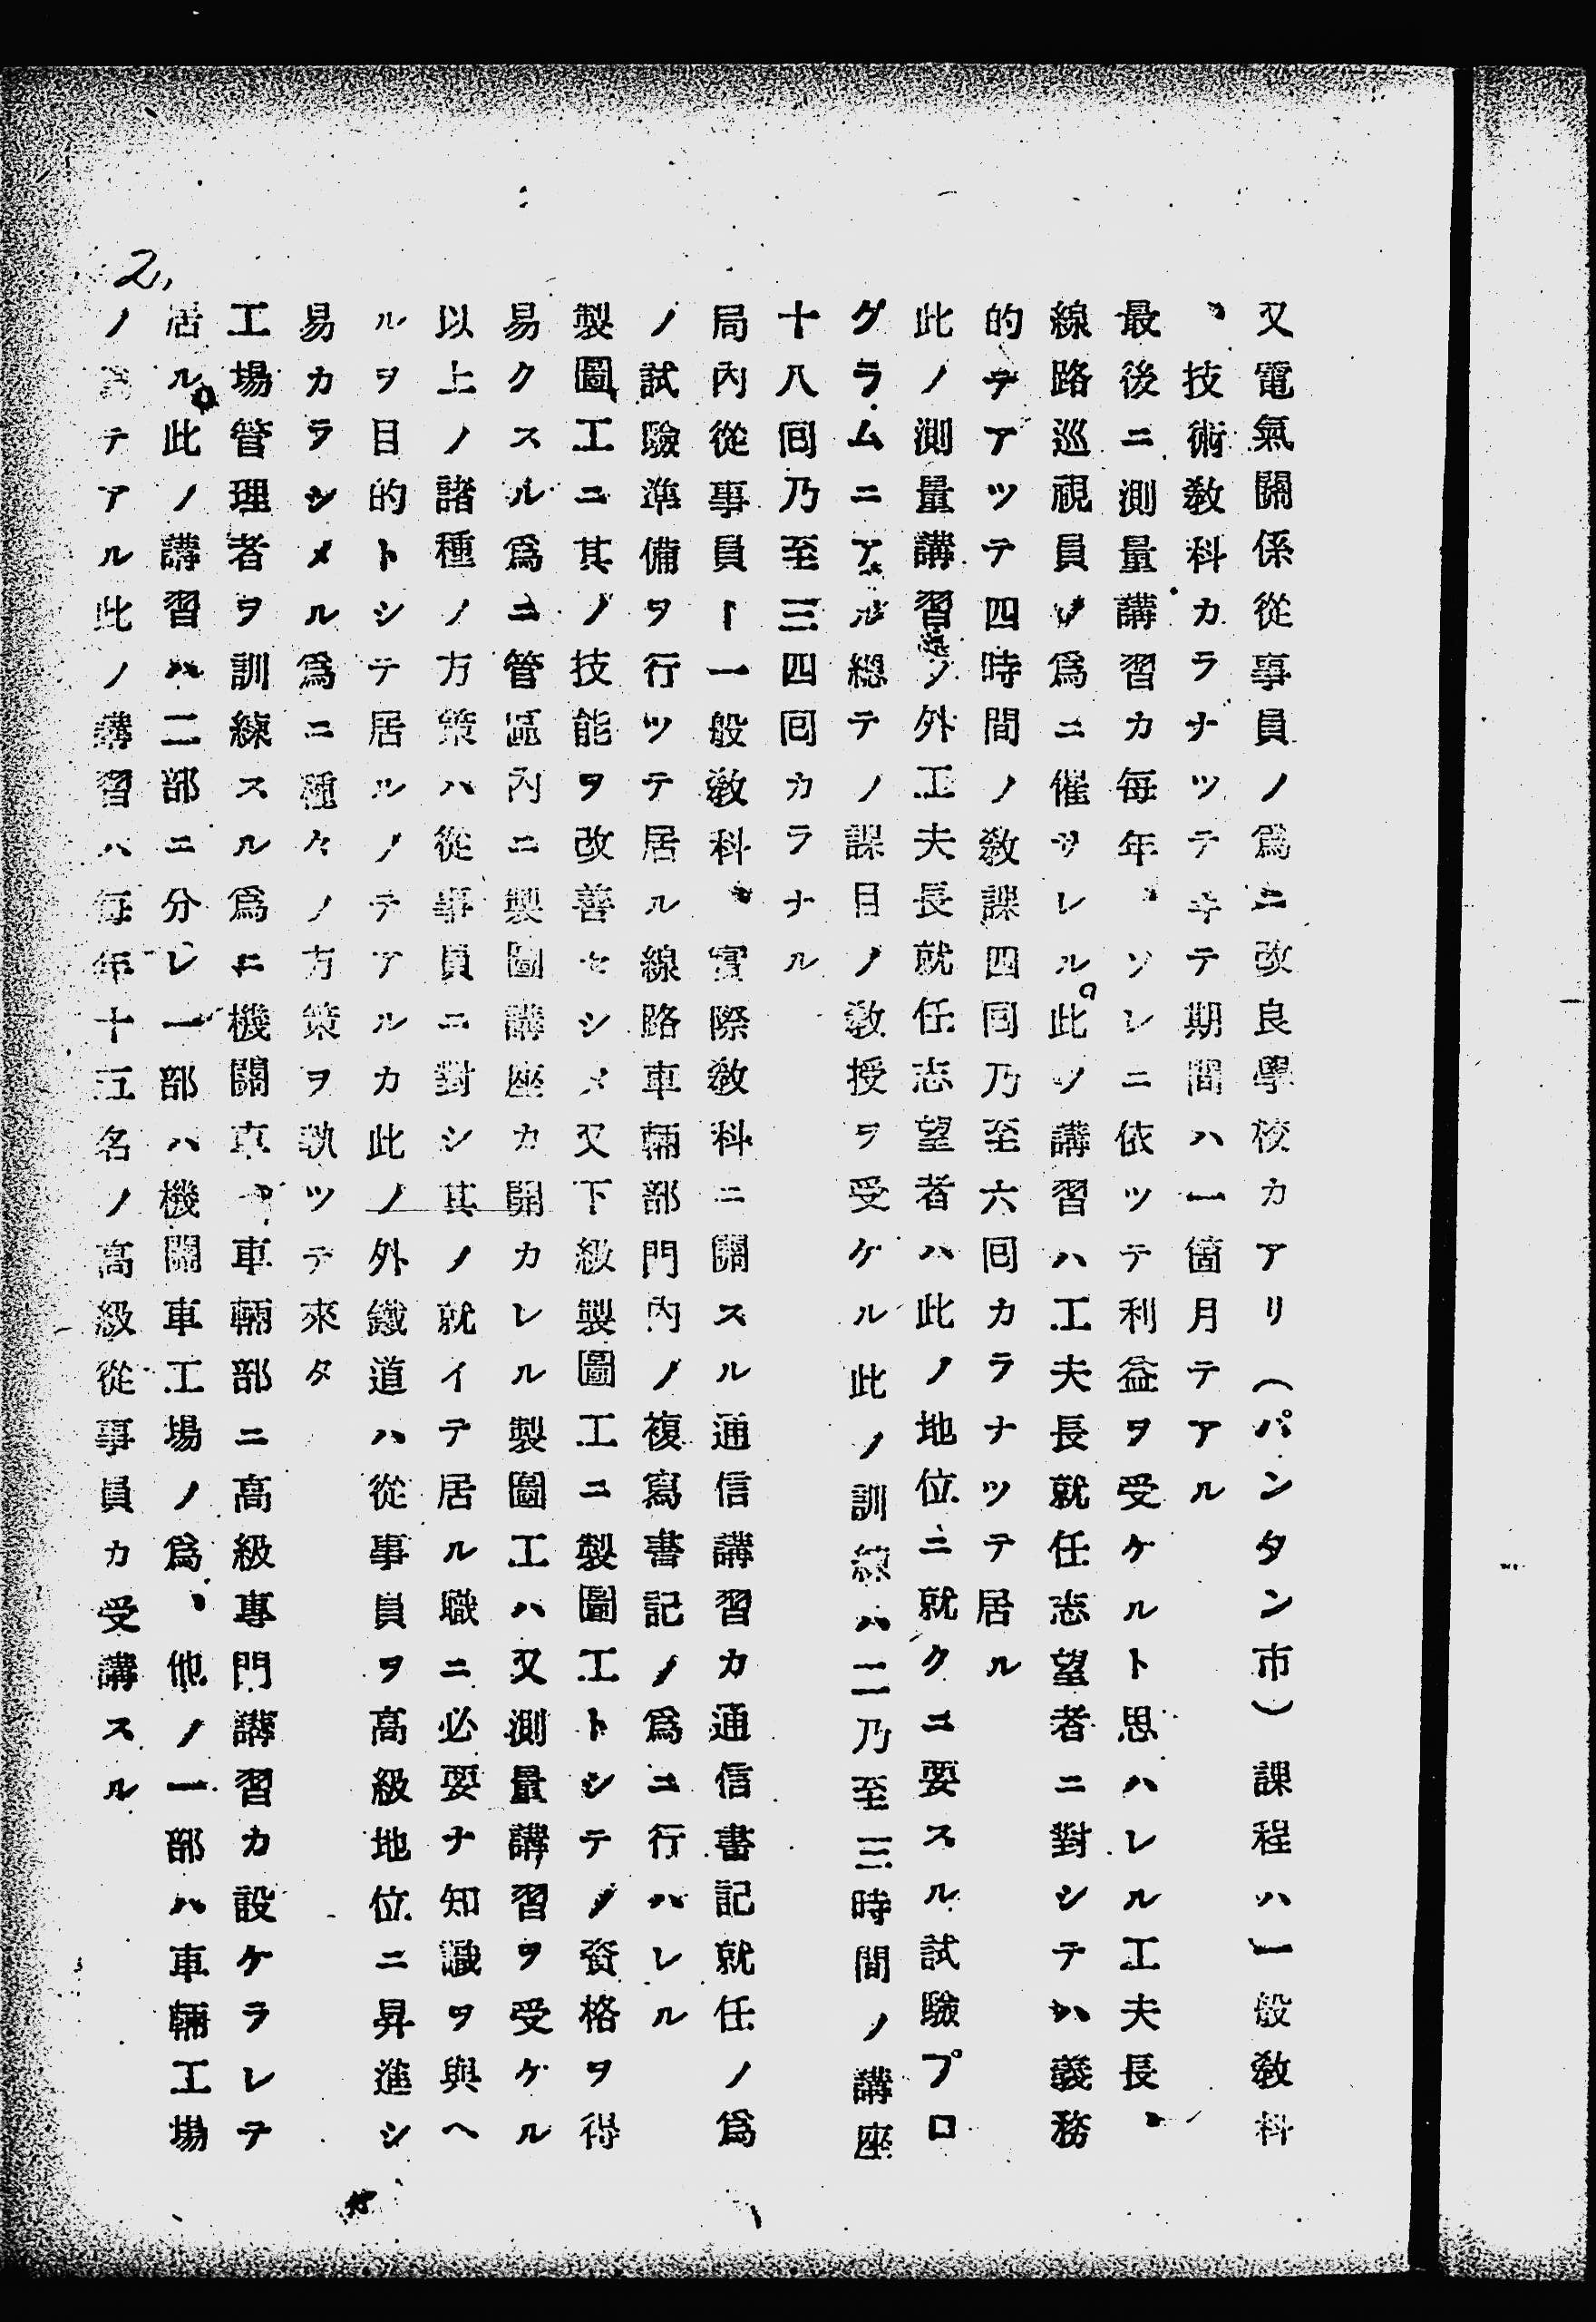 又電氣關係從事員ノ爲ニ改良學校カアリ(パンタン市)課程ハ一般敎科
、技術敎科カラナツテキテ期間ハ一箇月テアル
最後ニ測量講習カ每年、ソレニ依ツテ利益ヲ受ケルト思ハレル工夫長、
線路巡視員ノ爲ニ催サレル。此ノ講習ハ工夫長就任志望者ニ對シテハ義務
的テアツテ四時間ノ敎課四囘乃至六囘カラナツテ居ル
此ノ測量講習ノ外工夫長就任志望者ハ此ノ地位ニ就クニ要スル試驗プロ
グラムニアル總テノ課目ノ敎授ヲ受ケル此ノ訓練ハ二乃至三時間ノ講座
十八囘乃至三四囘カラナル
局內從事員ト一般敎科、實際敎科ニ關スル通信講習カ通信書記就任ノ爲
ノ試驗準備ヲ行ツテ居ル線路車輛部門內ノ複寫書記ノ爲ニ行ハレル
製圖工ニ其ノ技能ヲ改善セシメ又下級製圖工ニ製圖工トシテノ資格ヲ得
易クスル爲ニ管區內ニ製圖講座カ開カレル製圖工ハ又測量講習ヲ受ケル
以上ノ諸種ノ方策ハ從事員ニ對シ其ノ就イテ居ル職ニ必要ナ知識ヲ與ヘ
ルヲ目的トシテ居ルノテアルカ此ノ外鐵道ハ從事員ヲ高級地位ニ昇進シ
易カラシメル爲ニ種々ノ方策ヲ執ツテ來タ
工場管理者ヲ訓練スル爲ニ機關車、車輛部ニ高級專門講習カ設ケラレテ
居ル。此ノ講習ハ二部ニ分レ一部ハ機關車工場ノ爲、他ノ一部ハ車輛工場
ノ爲テアル此ノ講習ハ每年十五名ノ高級從事員カ受講スル
2,